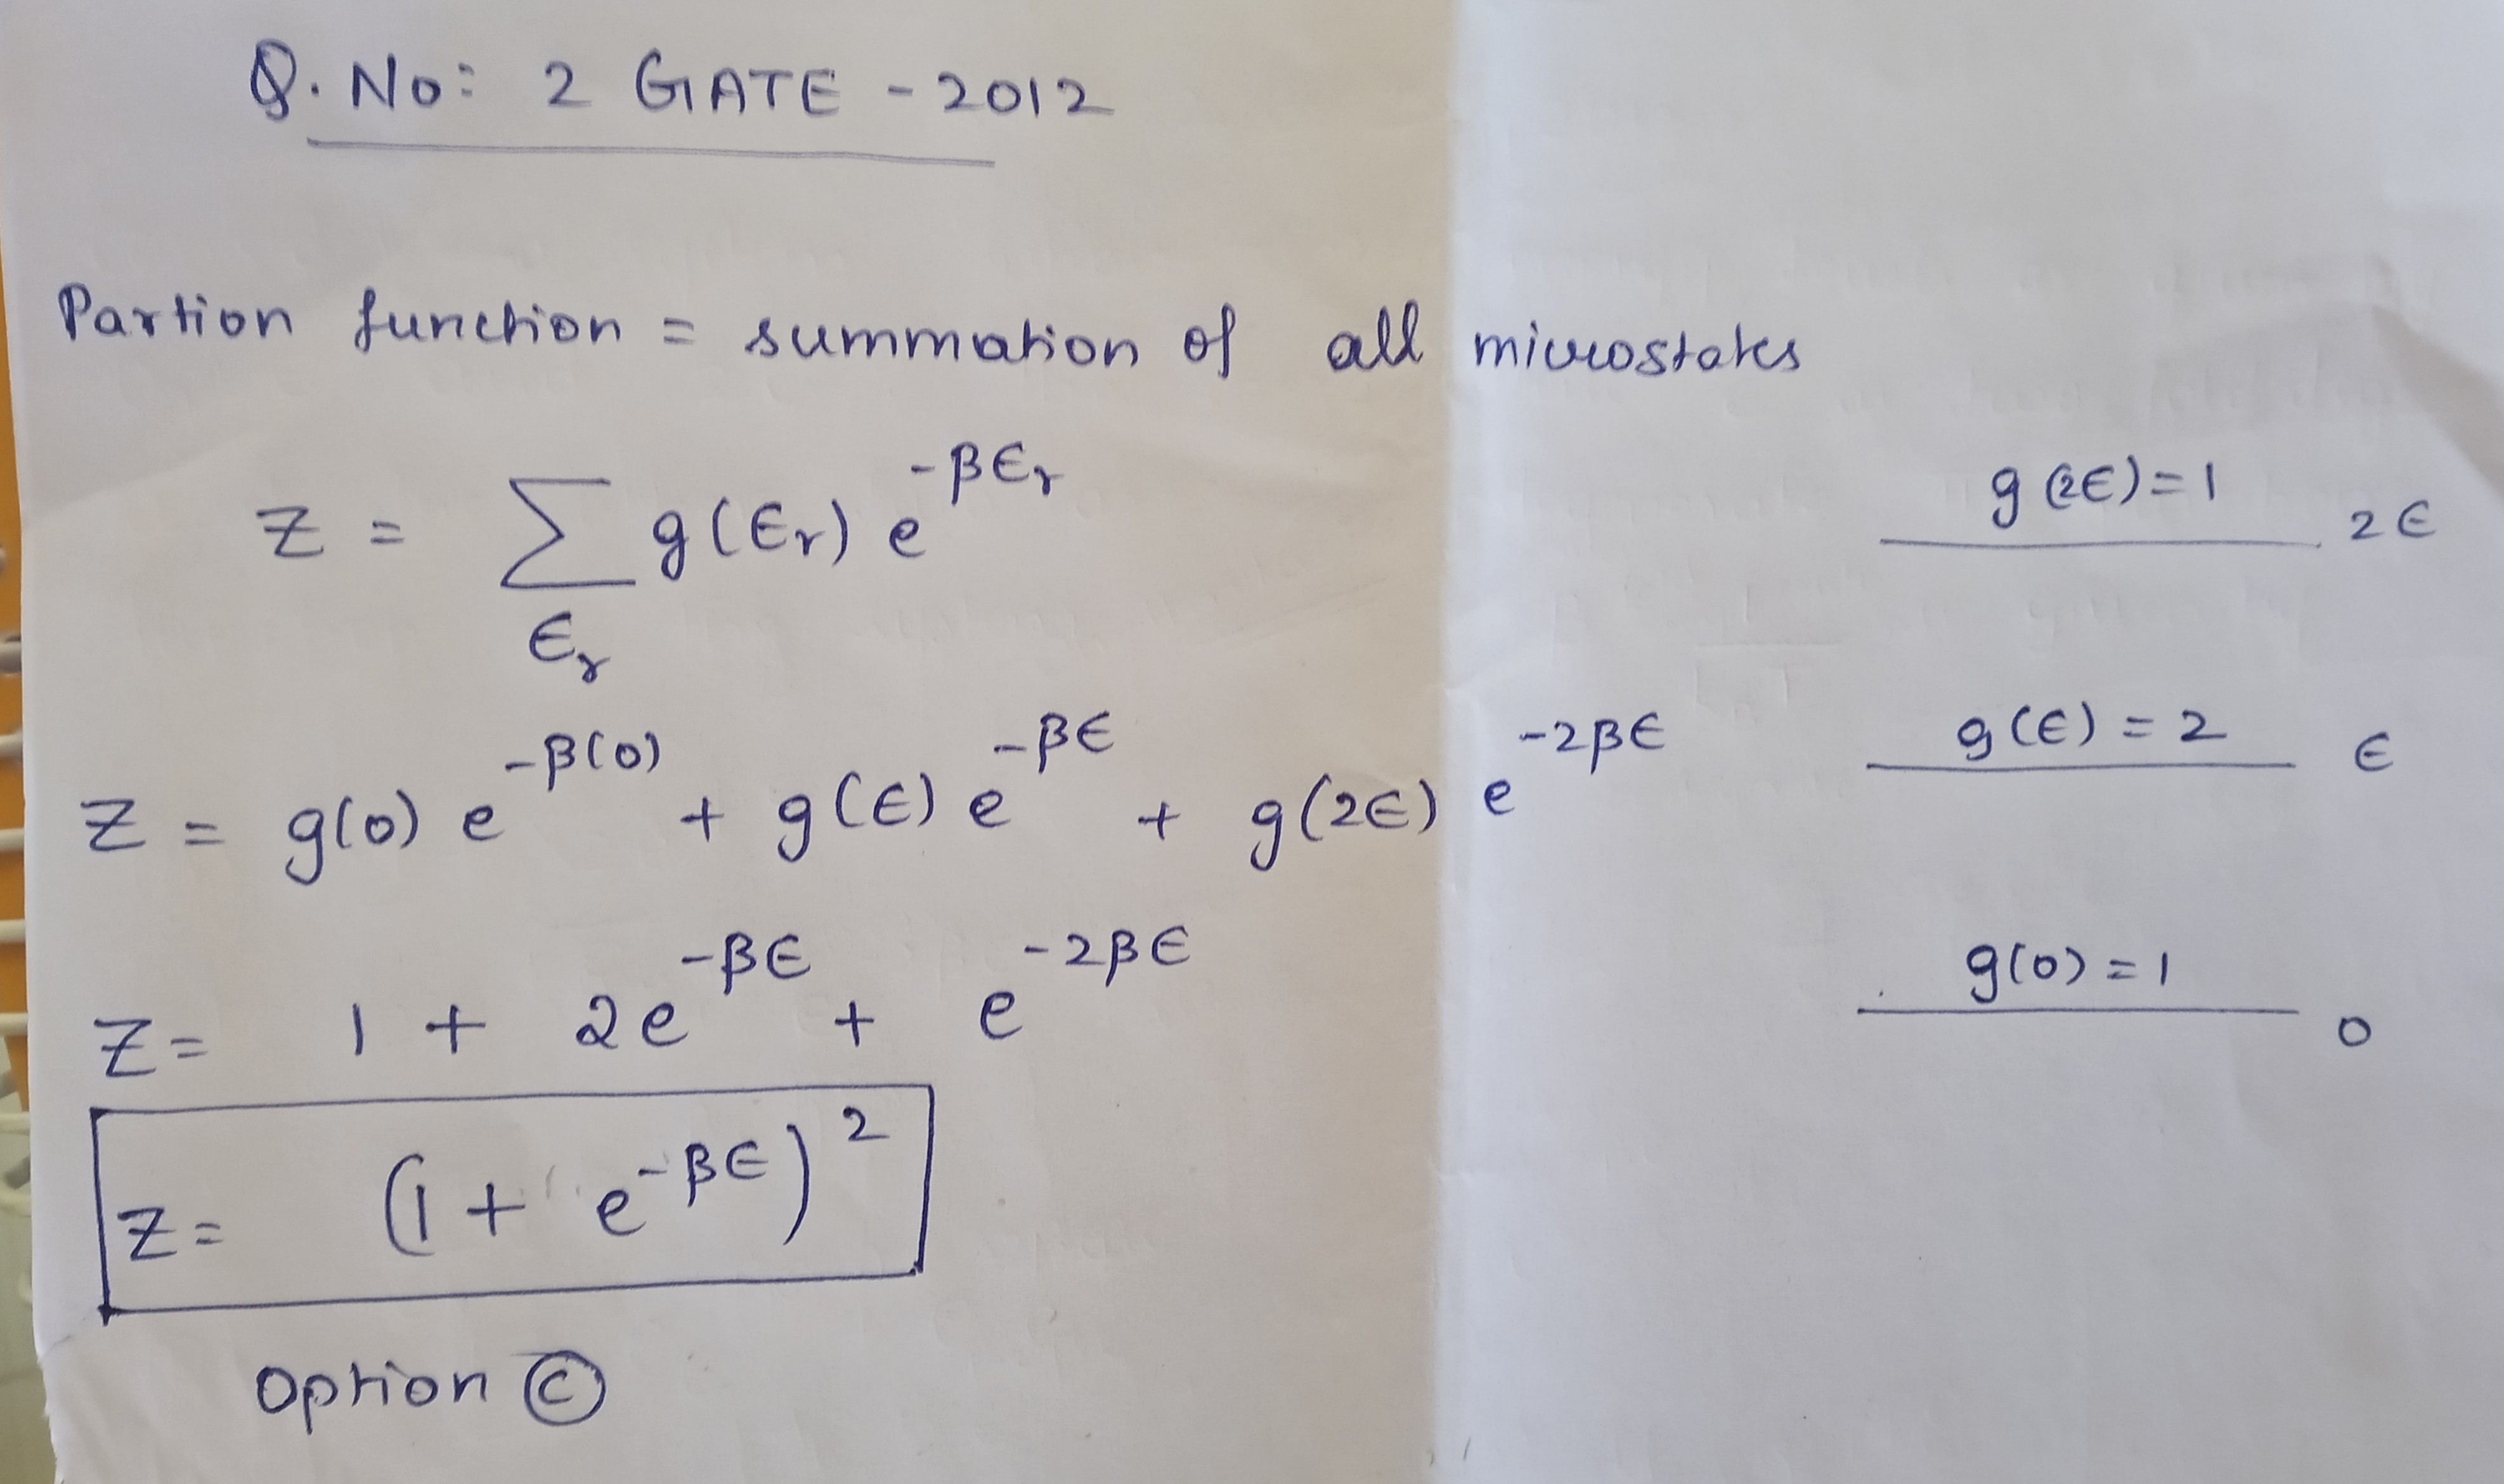 Q. No: 2 GATE - 2012
Partion function = summation of all microstates
Z = ∑ g(∈r) e^{-β∈r}
∈r
g(2∈) = 1 2∈
Z = g(0) e^{-β(0)} + g(∈) e^{-β∈} + g(2∈) e^{-2β∈}
g(∈) = 2 ∈
Z = 1 + 2e^{-β∈} + e^{-2β∈}
g(0) = 1 0
Z = (1 + e^{-β∈})^2
option ©